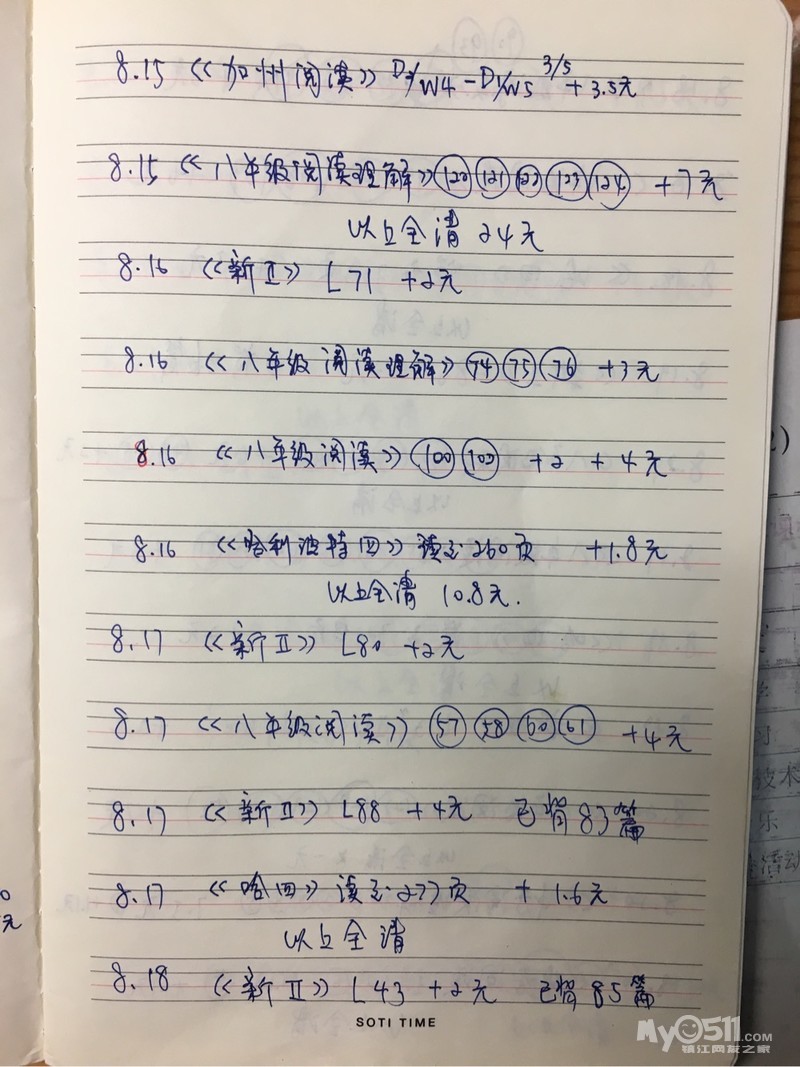 8.15 《加州阅读》D3/W4-D1/W5 3/5 +3.5元
8.15 《八年级阅读理解》120 121 122 123 124 +7元
以上全清 24元
8.16 《新Ⅱ》L71 +2元
8.16 《八年级阅读理解》74 75 76 +3元
8.16 《八年级阅读》100 103 +2 +4元
8.16 《哈利波特四》读至260页 +1.8元
以上全清 10.8元.
8.17 《新Ⅱ》L80 +2元
8.17 《八年级阅读》57 58 60 61 +4元
8.17 《新Ⅱ》L88 +4元 已背83篇
8.17 《哈四》读至277页 +1.6元
以上全清
8.18 《新Ⅱ》L43 +2元 已背85篇
SOTI TIME
元
技术
乐
活动
My0511.COM
镇江网友之家